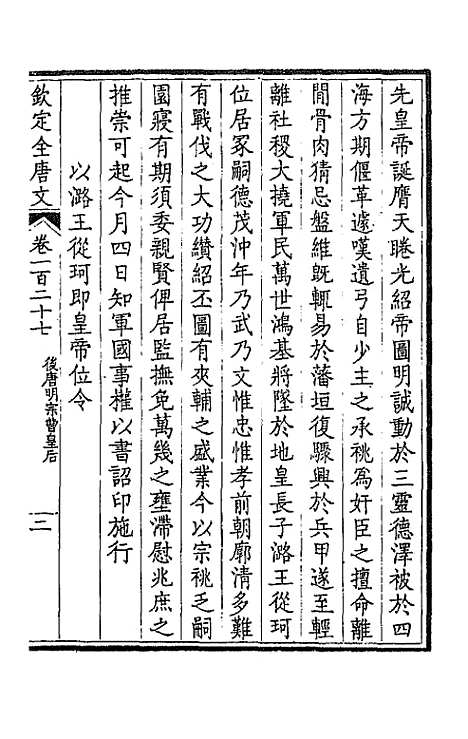 先皇帝誕膺天睠光紹帝圖明誠動於三靈德澤被於四
海方期偃革遽嘆遺弓自少主之承祧為奸臣之擅命離
閒骨肉猜忌盤維旣輒易於藩垣復驟興於兵甲遂至輕
離社稷大撓軍民萬世鴻基將墜於地皇長子潞王從珂
位居冢嗣德茂沖年乃武乃文惟忠惟孝前朝廓清多難
有戰伐之大功纘紹丕圖有夾輔之盛業今以宗祧乏嗣
園寢有期須委親賢俾居監撫免萬幾之壅滯慰兆庶之
推崇可起今月四日知軍國事權以書詔印施行
以潞王從珂即皇帝位令
欽定全唐文
卷一百二十七
後唐明宗曹皇后
二